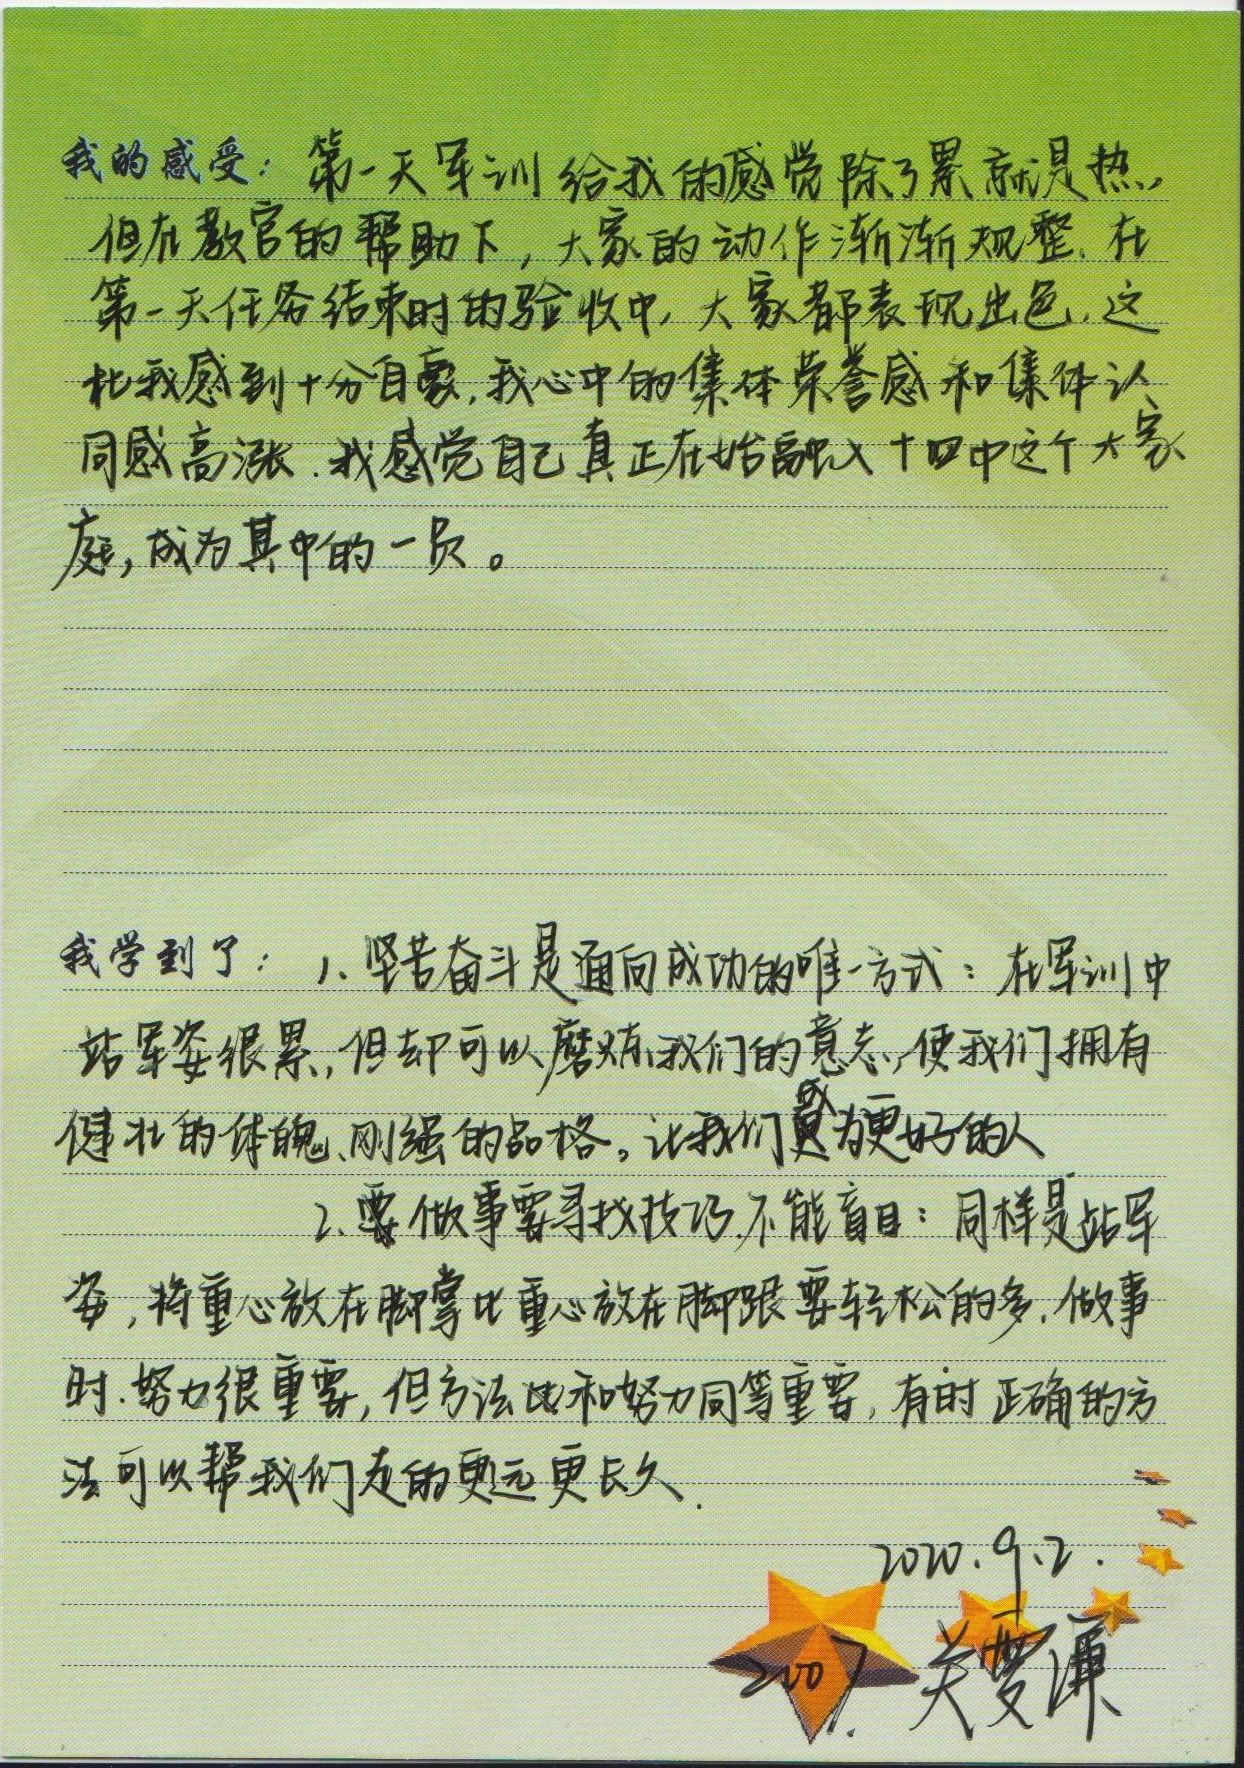 我的感受：第一天军训给我的感觉除了累就是热，
但在教官的帮助下，大家的动作渐渐规整.在
第一天任务结束时的验收中,大家都表现出色.这
让我感到十分自豪,我心中的集体荣誉感和集体认
同感高涨.我感觉自己真正在始融入十四中这个大家
庭,成为其中的一员。
我学到了：1、坚苦奋斗是通向成功的唯一方式：在军训中
站军姿很累,但却可以磨炼我们的意志,使我们拥有
健壮的体魄、刚强的品格。让我们成为更好的人
2、要做事要寻找技巧.不能盲目：同样是站军
姿,将重心放在脚掌比重心放在脚跟要轻松的多.做事
时.努力很重要,但方法比和努力同等重要,有时正确的方
法可以帮我们走的更远更长久.
2020.9.2.
2007. 关雯谦